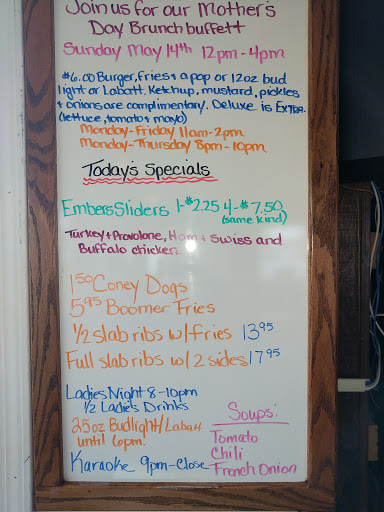 Join us for our Mother's
Day Brunch buffett
Sunday May 14th 12pm-4pm
$6.00 Burger, fries & a pop or 12oz bud
light or Labatt. Ketchup, mustard, pickles
& onions are complimentary. Deluxe is Extra.
(lettuce, tomato & mayo)
Monday-Friday 11am-2pm
Monday-Thursday 8pm-10pm
Today's Specials
Embers Sliders 1-$2.25 4-$7.50
(same kind)
Turkey & Provolone, Ham & Swiss and
Buffalo chicken
1.50 Coney Dogs
5.95 Boomer Fries
1/2 slab ribs w/fries 13.95
Full slab ribs w/2 sides 17.95
Ladies Night 8-10pm
1/2 Ladies Drinks
25oz Budlight/Labatt
until 6pm!
Karaoke 9pm-Close
Soups:
Tomato
Chili
French Onion